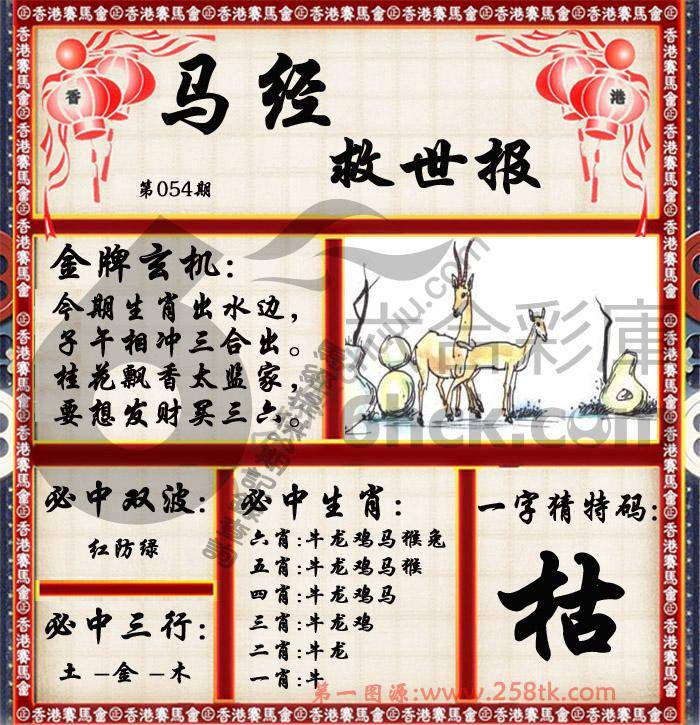 香港賽馬會
香
港
马经
救世报
第054期
金牌玄机:
今期生肖出水边,
子午相冲三合出。
桂花飘香太监家,
要想发财买三六。
六合彩庫
6hck.com
必中双波:
红防绿
必中三行:
土-金-木
必中生肖:
六肖:牛龙鸡马猴兔
五肖:牛龙鸡马猴
四肖:牛龙鸡马
三肖:牛龙鸡
二肖:牛龙
一肖:牛
一字猜特码:
枯
第一图源:www.258tk.com